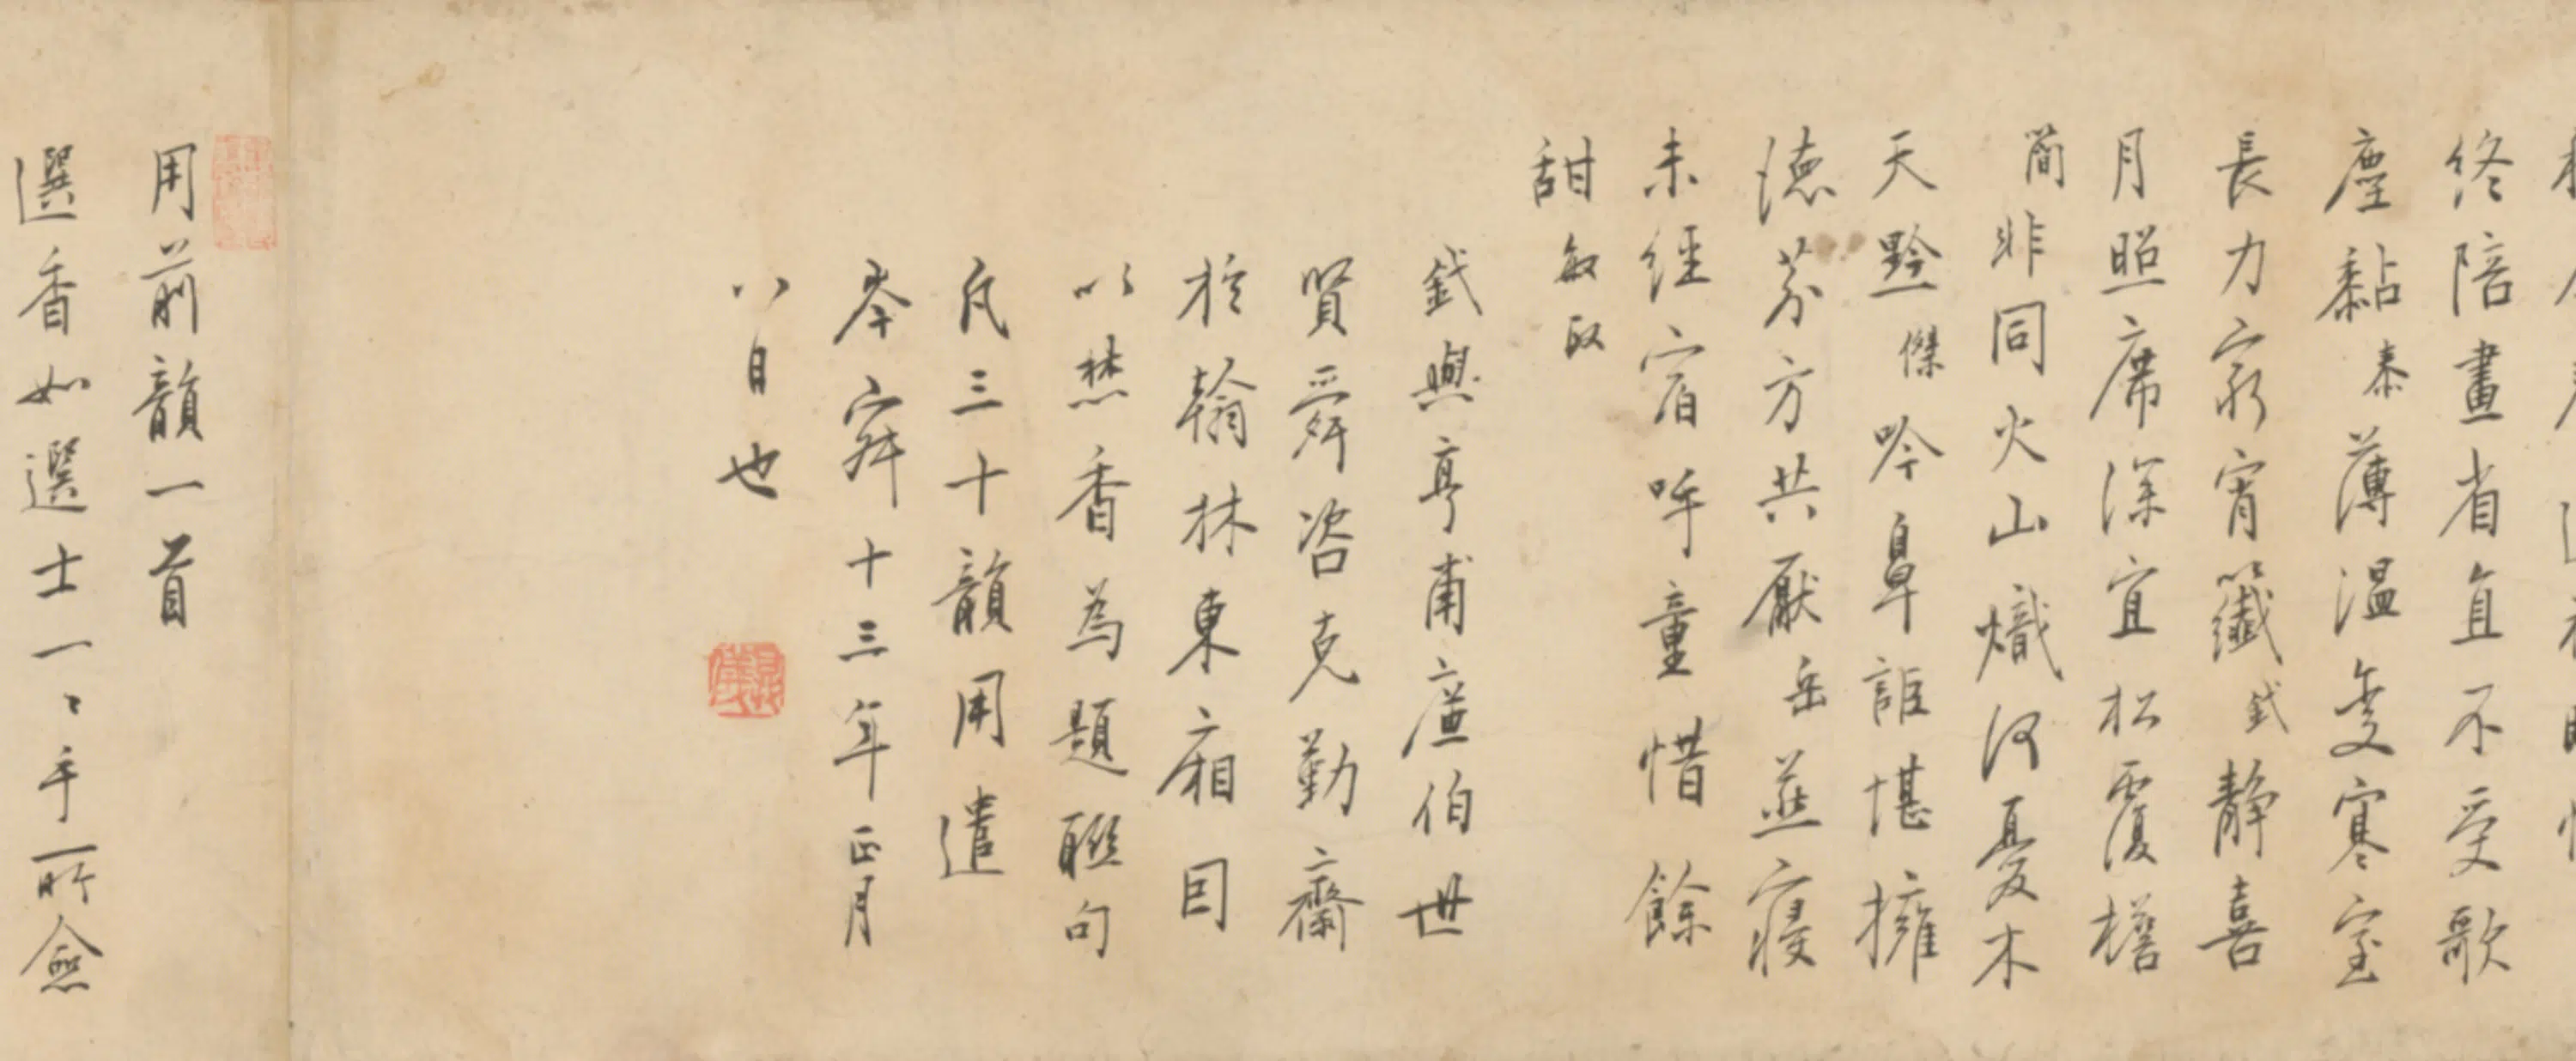 終陪畫省直不受歌
塵黏泰薄溫變寒室
長力窮宵籤鉞靜喜
月照席深宜松覆檐
簡非同火山熾何憂木
天黔傑吟鼻詎堪擁
德芬方共厭岳並寢
未經宿呼童惜餘
甜敏政
鉞與亨甫廉伯世
賢舜咨克勤齋
於翰林東廂因
以焚香為題聯句
凡三十韻用遣
岑寂十三年正月
八日也
用前韻一首
選香如選士一〻手所僉